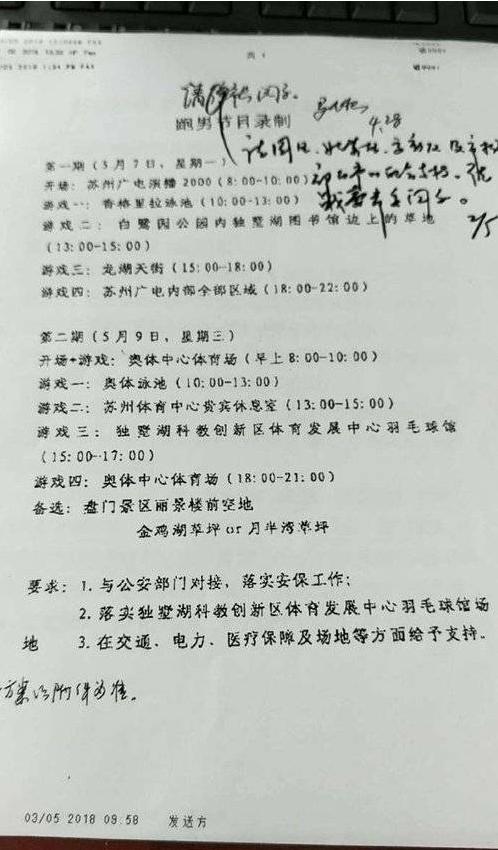 页 1
跑男节目录制
4.28
第一期(5月7日,星期一)
开场:苏州广电演播2000(8:00-10:00)
游戏一:香格里拉泳池(10:00-13:00)
2/5
游戏二:白鹭园公园内独墅湖图书馆边上的草地
(13:00-15:00)
游戏三:龙湖天街(15:00-18:00)
游戏四:苏州广电内部全部区域(18:00-22:00)
第二期(5月9日,星期三)
开场+游戏:奥体中心体育场(早上8:00-10:00)
游戏一:奥体泳池(10:00-13:00)
游戏二:苏州体育中心贵宾休息室(13:00-15:00)
游戏三:独墅湖科教创新区体育发展中心羽毛球馆
(15:00-17:00)
游戏四:奥体中心体育场(18:00-21:00)
备选:盘门景区丽景楼前空地
金鸡湖草坪or月半湾草坪
要求:1.与公安部门对接,落实安保工作;
2.落实独墅湖科教创新区体育发展中心羽毛球馆场
地 3.在交通、电力、医疗保障及场地等方面给予支持。
方案以附件为准。
03/05 2018 09:58 发送方